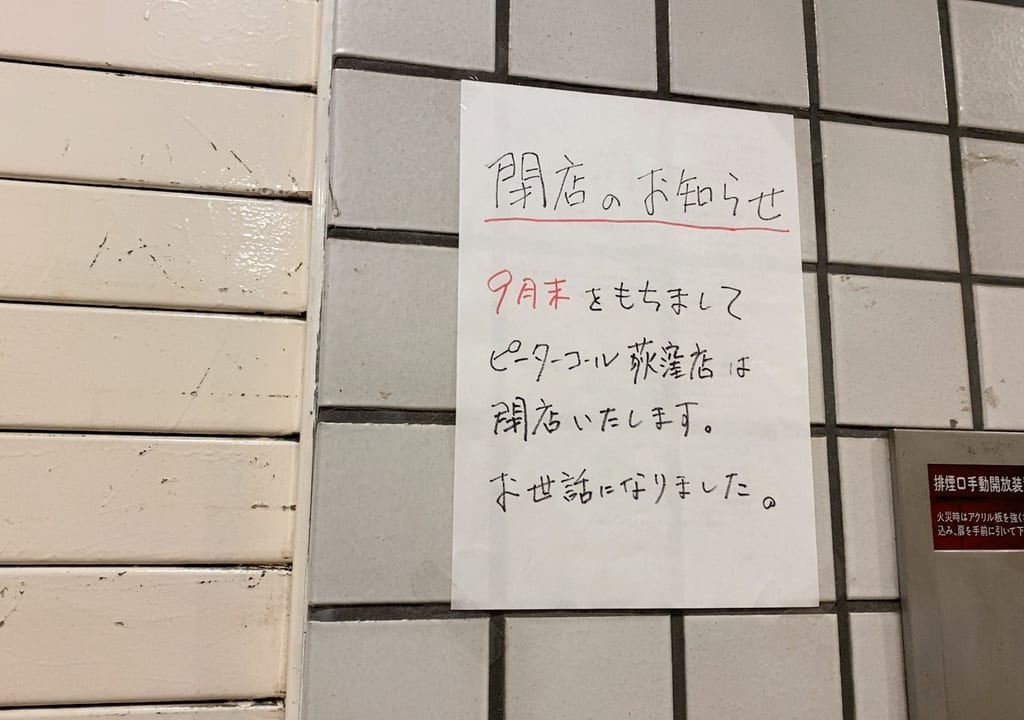 閉店のお知らせ
9月末をもちまして
ピーターコール荻窪店は
閉店いたします。
お世話になりました。
排煙口手動開放装
火災時はアクリル板を強く
込み、扉を手前に引いて下